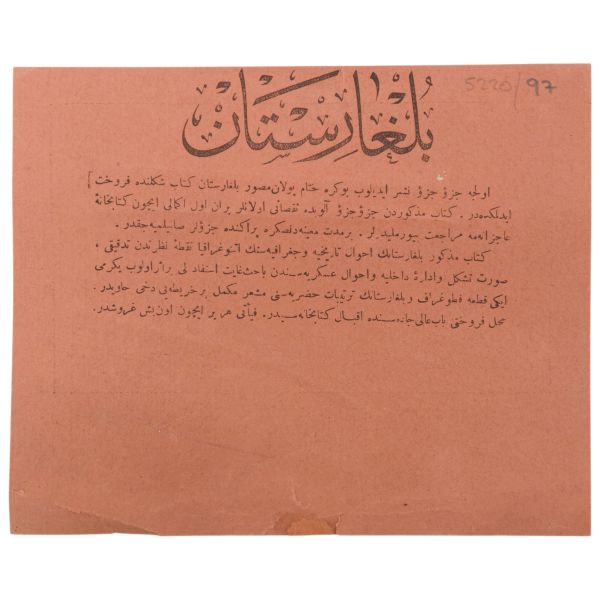 5220/97
بلغارستان
اولجه جزؤ جزؤ نشر ایدیلوب بوکره ختام بولان مصور بلغارستان کتاب شکلنده فروخت [
ایدلکده در . کتاب مذکوردن جزؤ جزؤ آلوبده نقصانی اولانلر بران اول اکمالی ایچون کتابخانهٔ
عاجزانه مه مراجعت بیورملیدرلر . برمدت معینه دنصکره پراکنده جزؤلر صاتیلمیه جقدر .
کتاب مذکور بلغارستانك احوال تاریخیه و جغرافیه سنك اتنوغرافیا نقطهٔ نظرندن تدقیقی ،
صورت تشکل وادارهٔ داخلیه واحوال عسکریه سندن باحث غایت استفاده لی براثر اولوب یکرمی
ایکی قطعه فطوغراف و بلغارستانك ترتیبات حضریه سنی مشعر مکمل برخریطه یی دخی حاویدر .
محل فروختی باب عالی جاده سنده اقبال کتابخانه سیدر . فیأتی هر یر ایچون اون بش غروشدر .